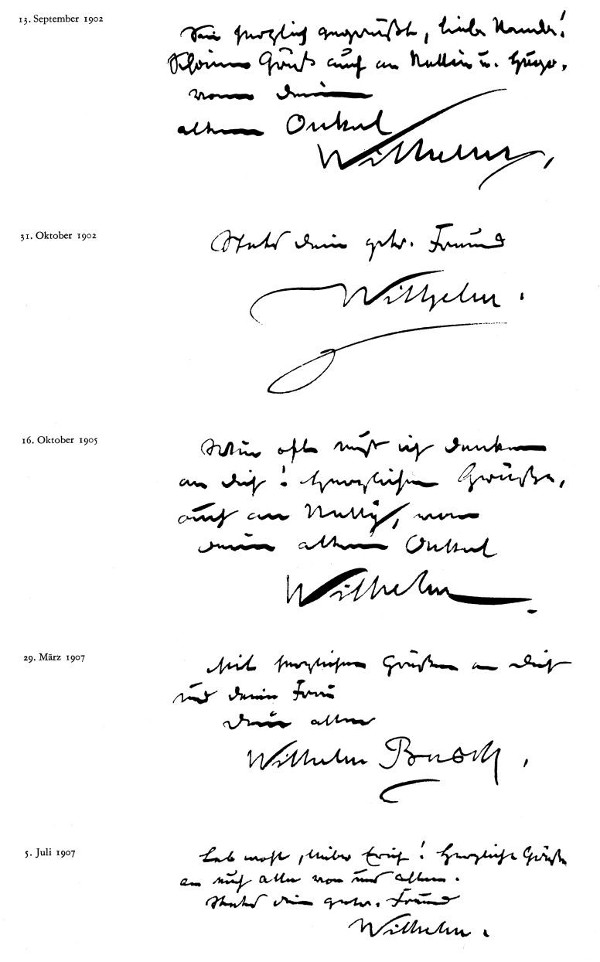 13. September 1902
Sei herzlich gegrüßt, liebe Nanda!
Schönen Gruß auch an Nelly u. Hugo,
von Deinem
alten Onkel
Wilhelm,
31. Oktober 1902
Stets dein getr. Freund
Wilhelm.
16. Oktober 1905
Wie oft muß ich denken
an dich! Herzliche Grüße,
auch an Nelly, von
deinem alten Onkel
Wilhelm.
29. März 1907
Mit herzlichen Grüßen an Dich
und deine Frau
Dein alter
Wilhelm Busch,
5. Juli 1907
Leb wohl, lieber Erich! Herzliche Grüße
an euch alle von uns allen.
Stets dein getr. Freund
Wilhelm.